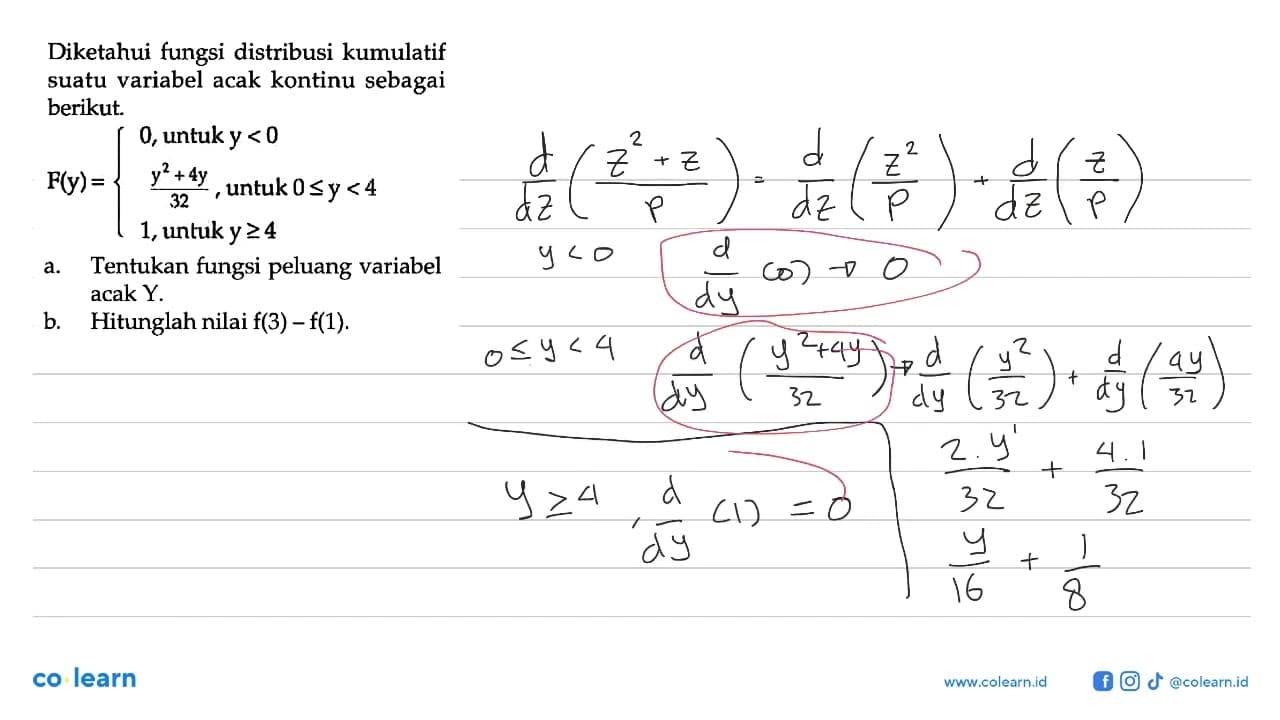 Diketahui fungsi distribusi kumulatif
suatu variabel acak kontinu sebagai
berikut.
F(y) = { 0, untuk y < 0
(y² + 4y)/32, untuk 0 ≤ y < 4
1, untuk y ≥ 4
a. Tentukan fungsi peluang variabel
acak Y.
b. Hitunglah nilai f(3) – f(1).
d/dz ((z² + z)/p) = d/dz (z²/p) + d/dz (z/p)
y < 0 d/dy (0) → 0
0 ≤ y < 4 d/dy ((y² + 4y)/32) → d/dy (y²/32) + d/dy (4y/32)
2.y¹/32 + 4.1/32
y ≥ 4, d/dy (1) = 0
y/16 + 1/8
co learn
www.colearn.id
@colearn.id